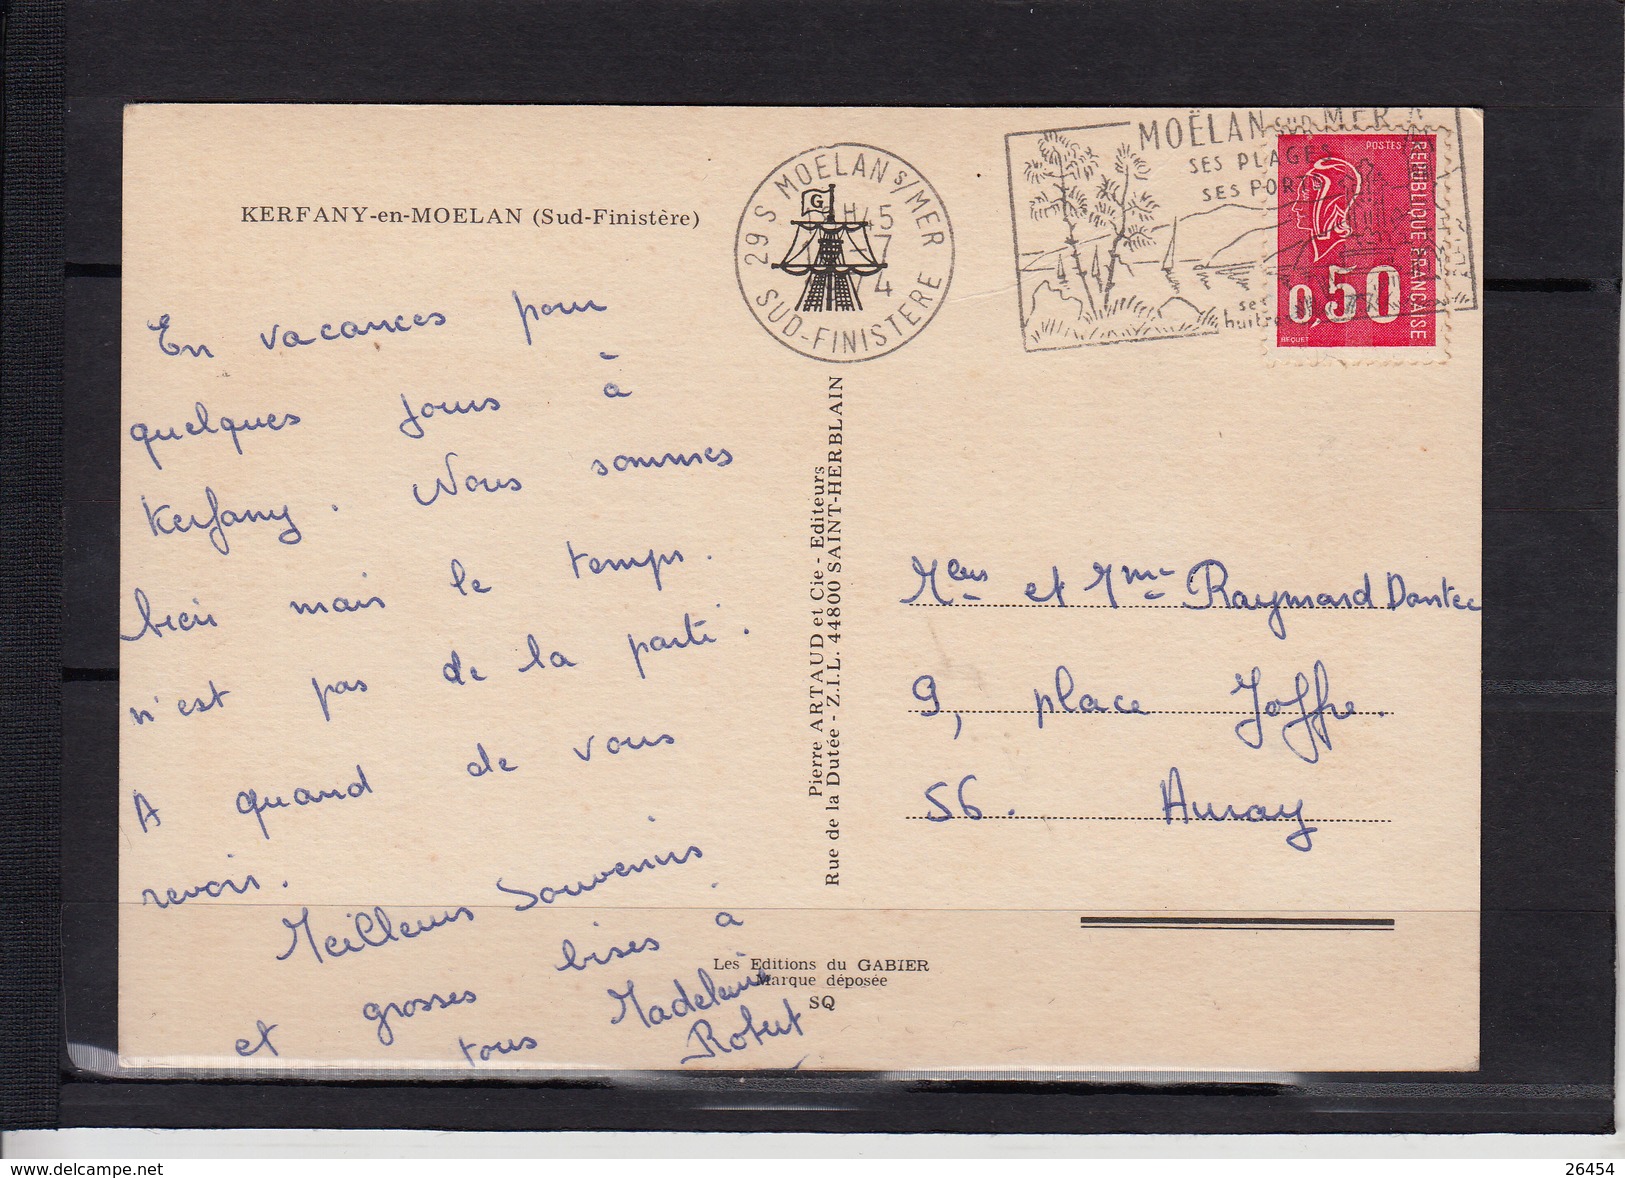 KERFANY-en-MOELAN (Sud-Finistère)
En vacances pour
quelques jours à
Kerfany. Nous sommes
bien mais le temps
n'est pas de la partie.
A quand de vous
revoir.
Meilleurs Souvenirs
et grosses bises à
tous Madeleine
Robert
29 S MOELAN S/MER
SUD-FINISTERE
H 45
-7
4
G
MOËLAN sur MER
SES PLAGES
SES PORTS
ses
huîtres
POSTES
REPUBLIQUE FRANÇAISE
0,50
BEQUET
Pierre ARTAUD et Cie - Editeurs
Rue de la Dutée - Z.I.L. 44800 SAINT-HERBLAIN
et Mme Raymond Dantec
9, place Joffre.
56. Auray
Les Editions du GABIER
Marque déposée
SQ
www.delcampe.net
pasqual
26454